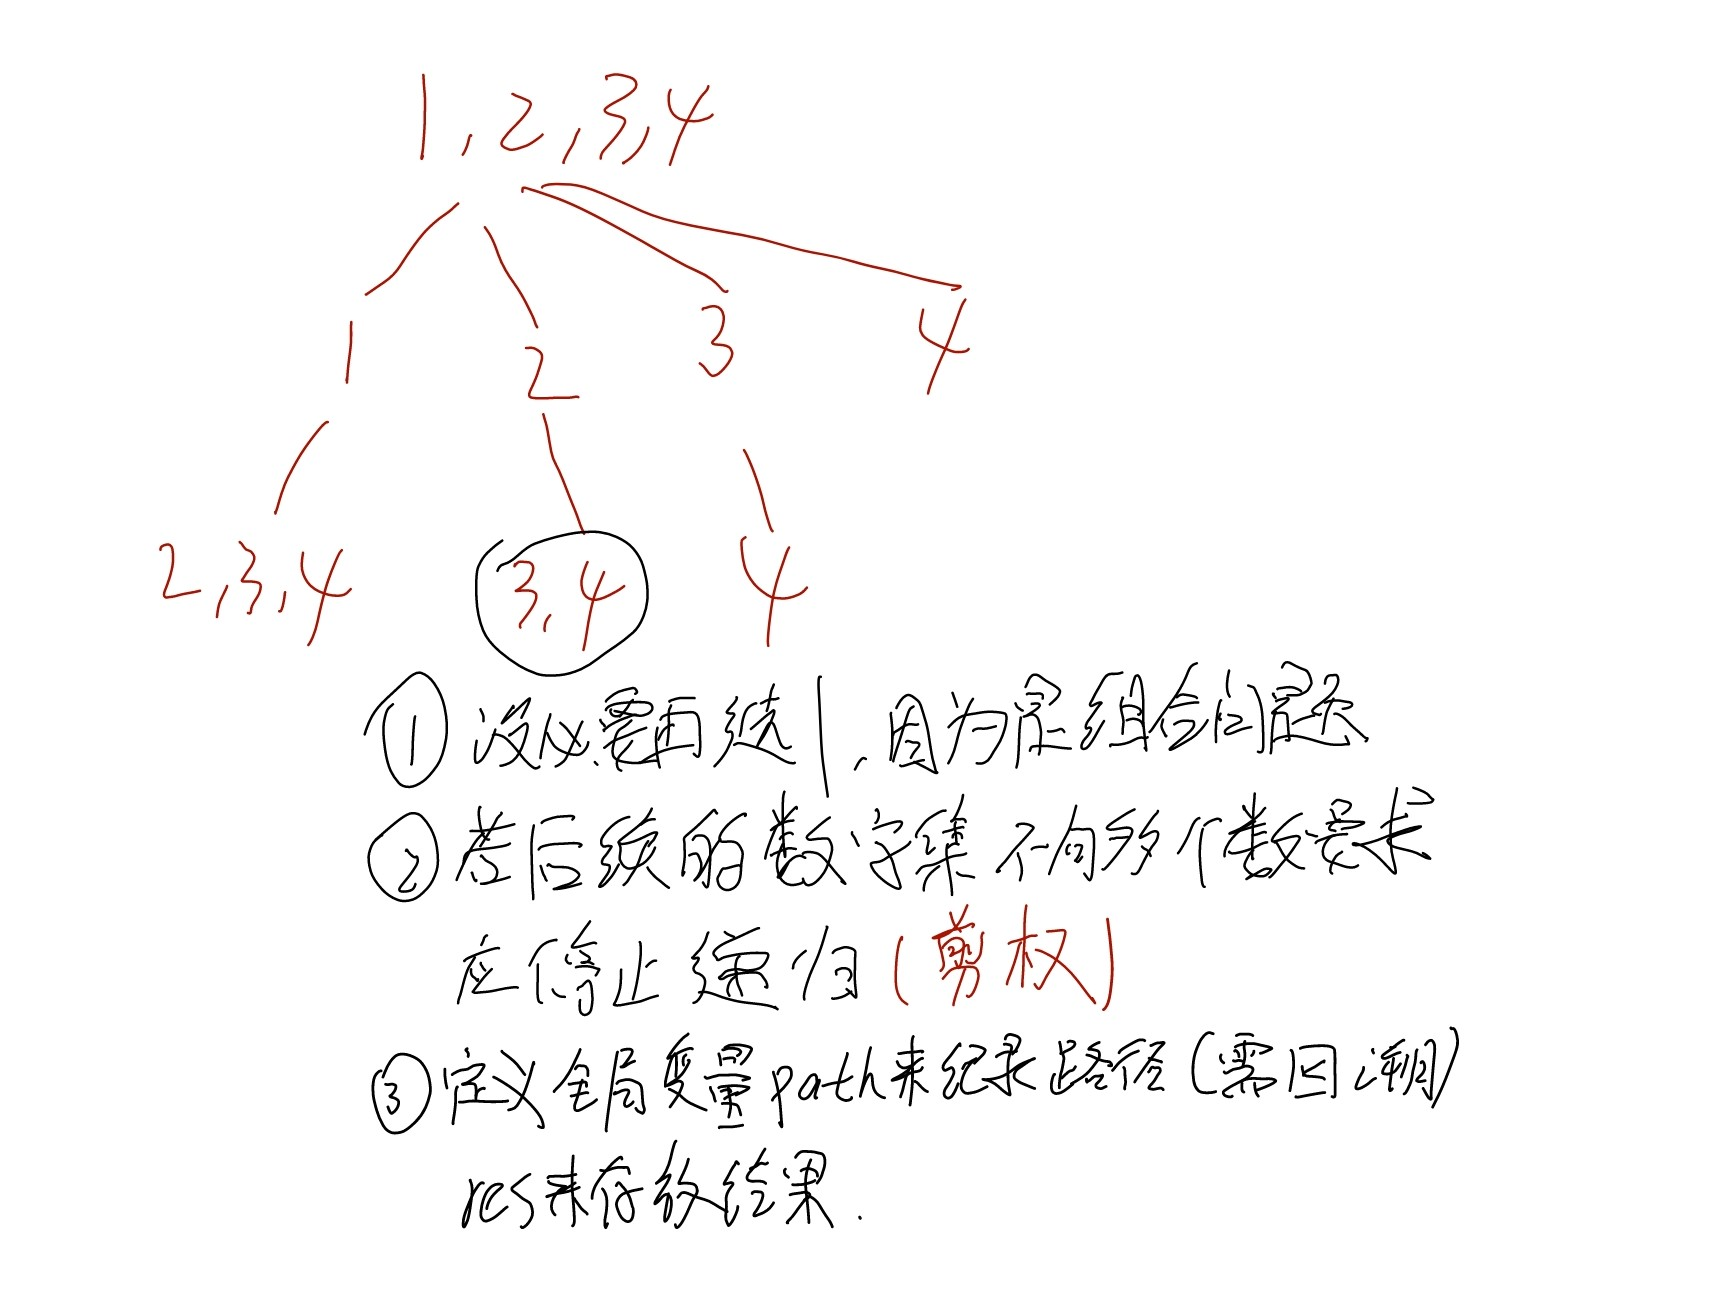 1,2,3,4
1 2 3 4
2,3,4 3,4 4
① 没必要再选1,因为是组合问题
② 若后续的数字集不有多个数要求
应停止递归(剪权)
③ 定义全局变量path来纪录路径(需回溯)
res来存放结果.